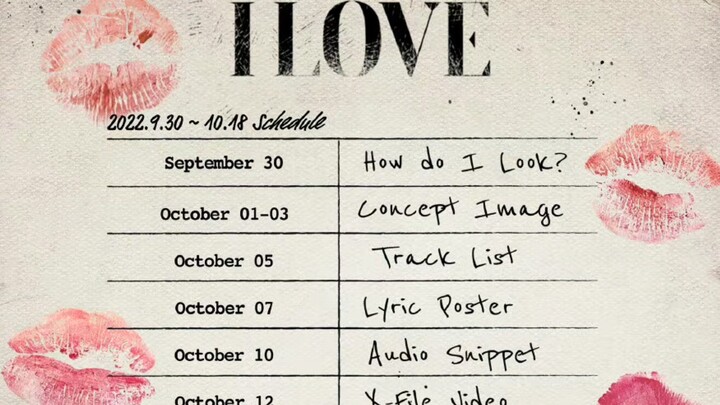 I LOVE
2022.9.30 ~ 10.18 Schedule
September 30 How do I Look?
October 01-03 Concept Image
October 05 Track List
October 07 Lyric Poster
October 10 Audio Snippet
October 12 X-File Video